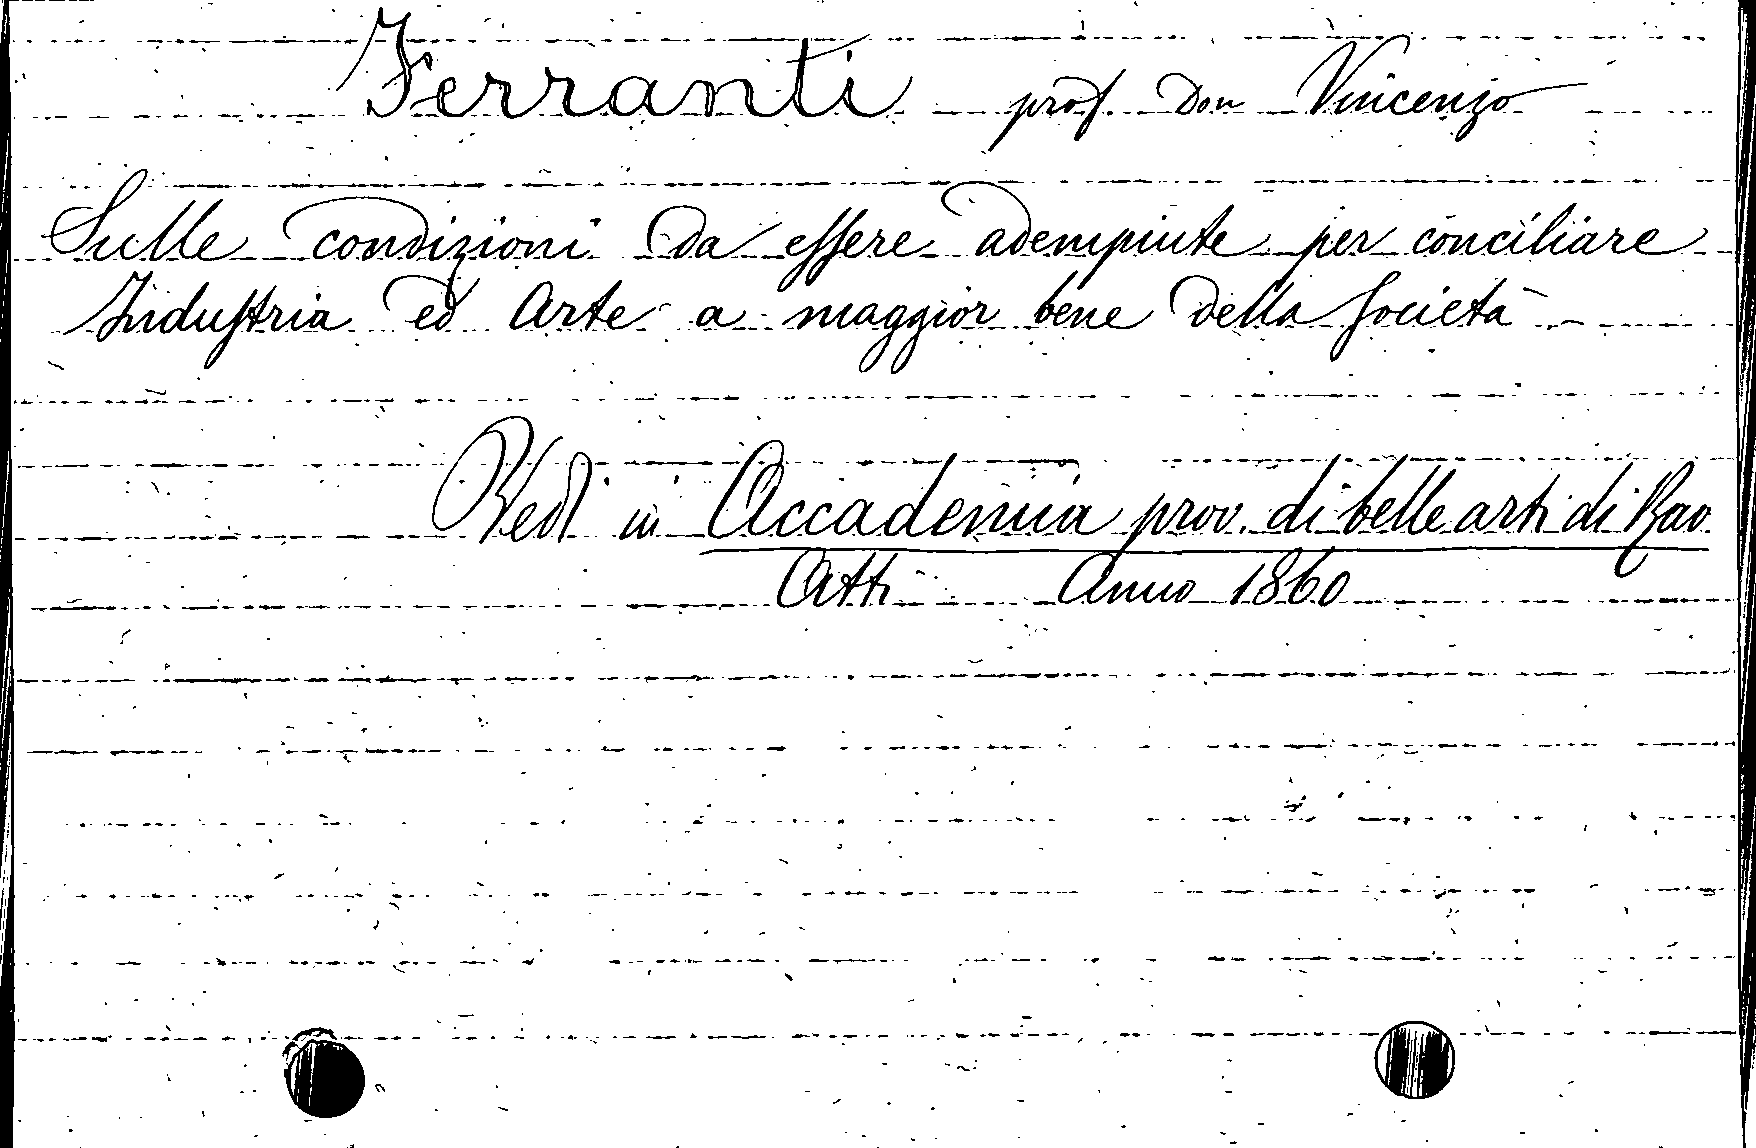 Ferranti prof. Don Vincenzo
Sulle condizioni da essere adempiute per conciliare
Industria ed Arte a maggior bene della società
Vedi in Accademia prov. di belle arti di Rav.
Atti Anno 1860